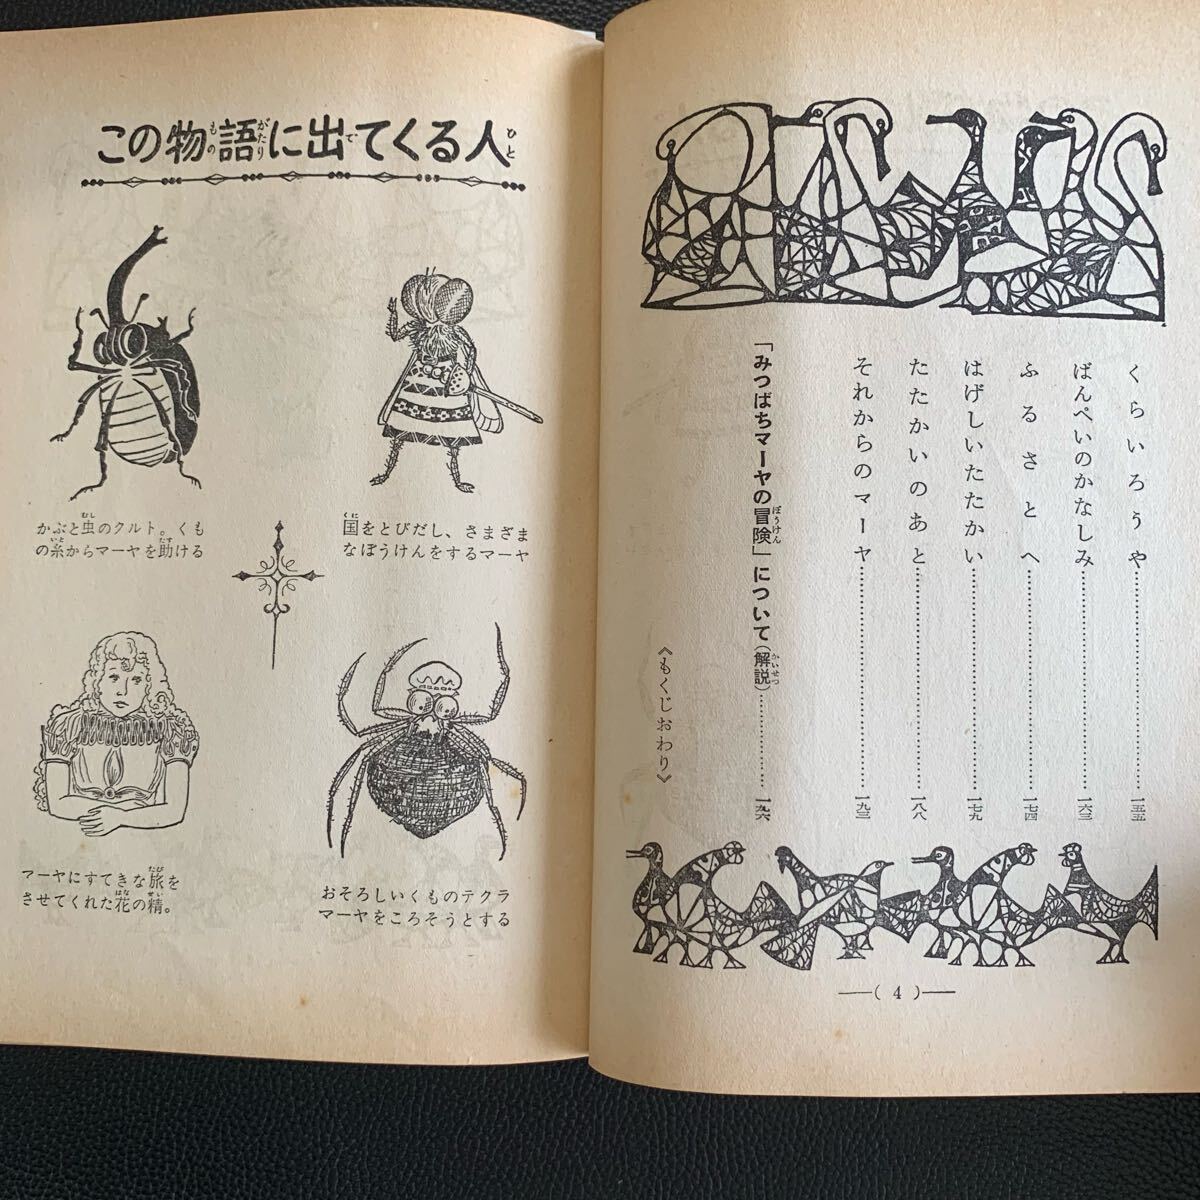 くらいろうや……………一五五
ばんぺいのかなしみ……………一六三
ふるさとへ……………一七四
はげしいたたかい……………一七九
たたかいのあと……………一八八
それからのマーヤ……………一九三
「みつばちマーヤの冒険」について(解説)……………一九六
《もくじおわり》
—( 4 )—
この物語に出てくる人
国をとびだし、さまざま
なぼうけんをするマーヤ
かぶと虫のクルト。くも
の糸からマーヤを助ける
おそろしいくものテクラ
マーヤをころそうとする
マーヤにすてきな旅を
させてくれた花の精。